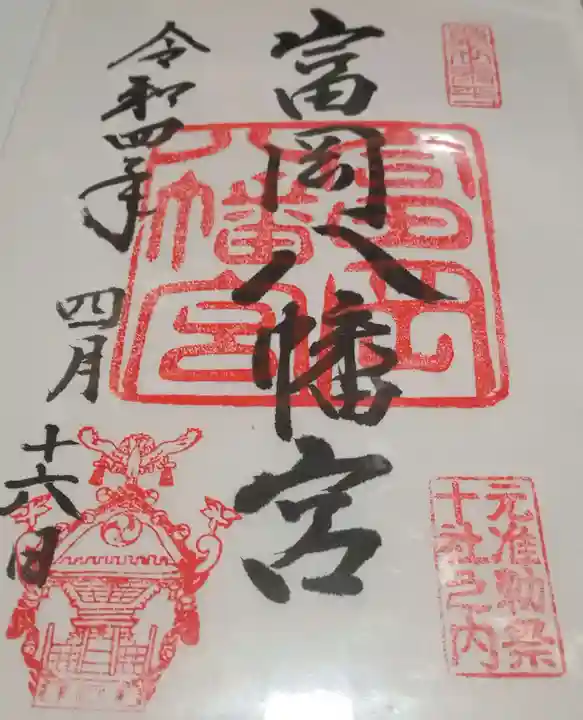 富岡八幡宮
令和四年
四月
十六日
富岡
八幡宮
元准勅祭
十社之内